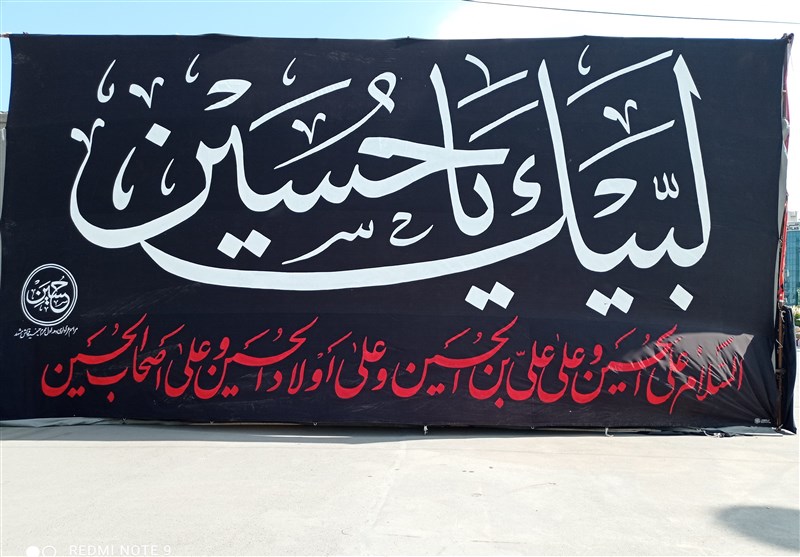 لبّيك يا حسين
السّلام علی الحسين و علی علیّ بن الحسين و علی أولاد الحسين و علی اصحاب الحسين
حسين
REDMI NOTE 9